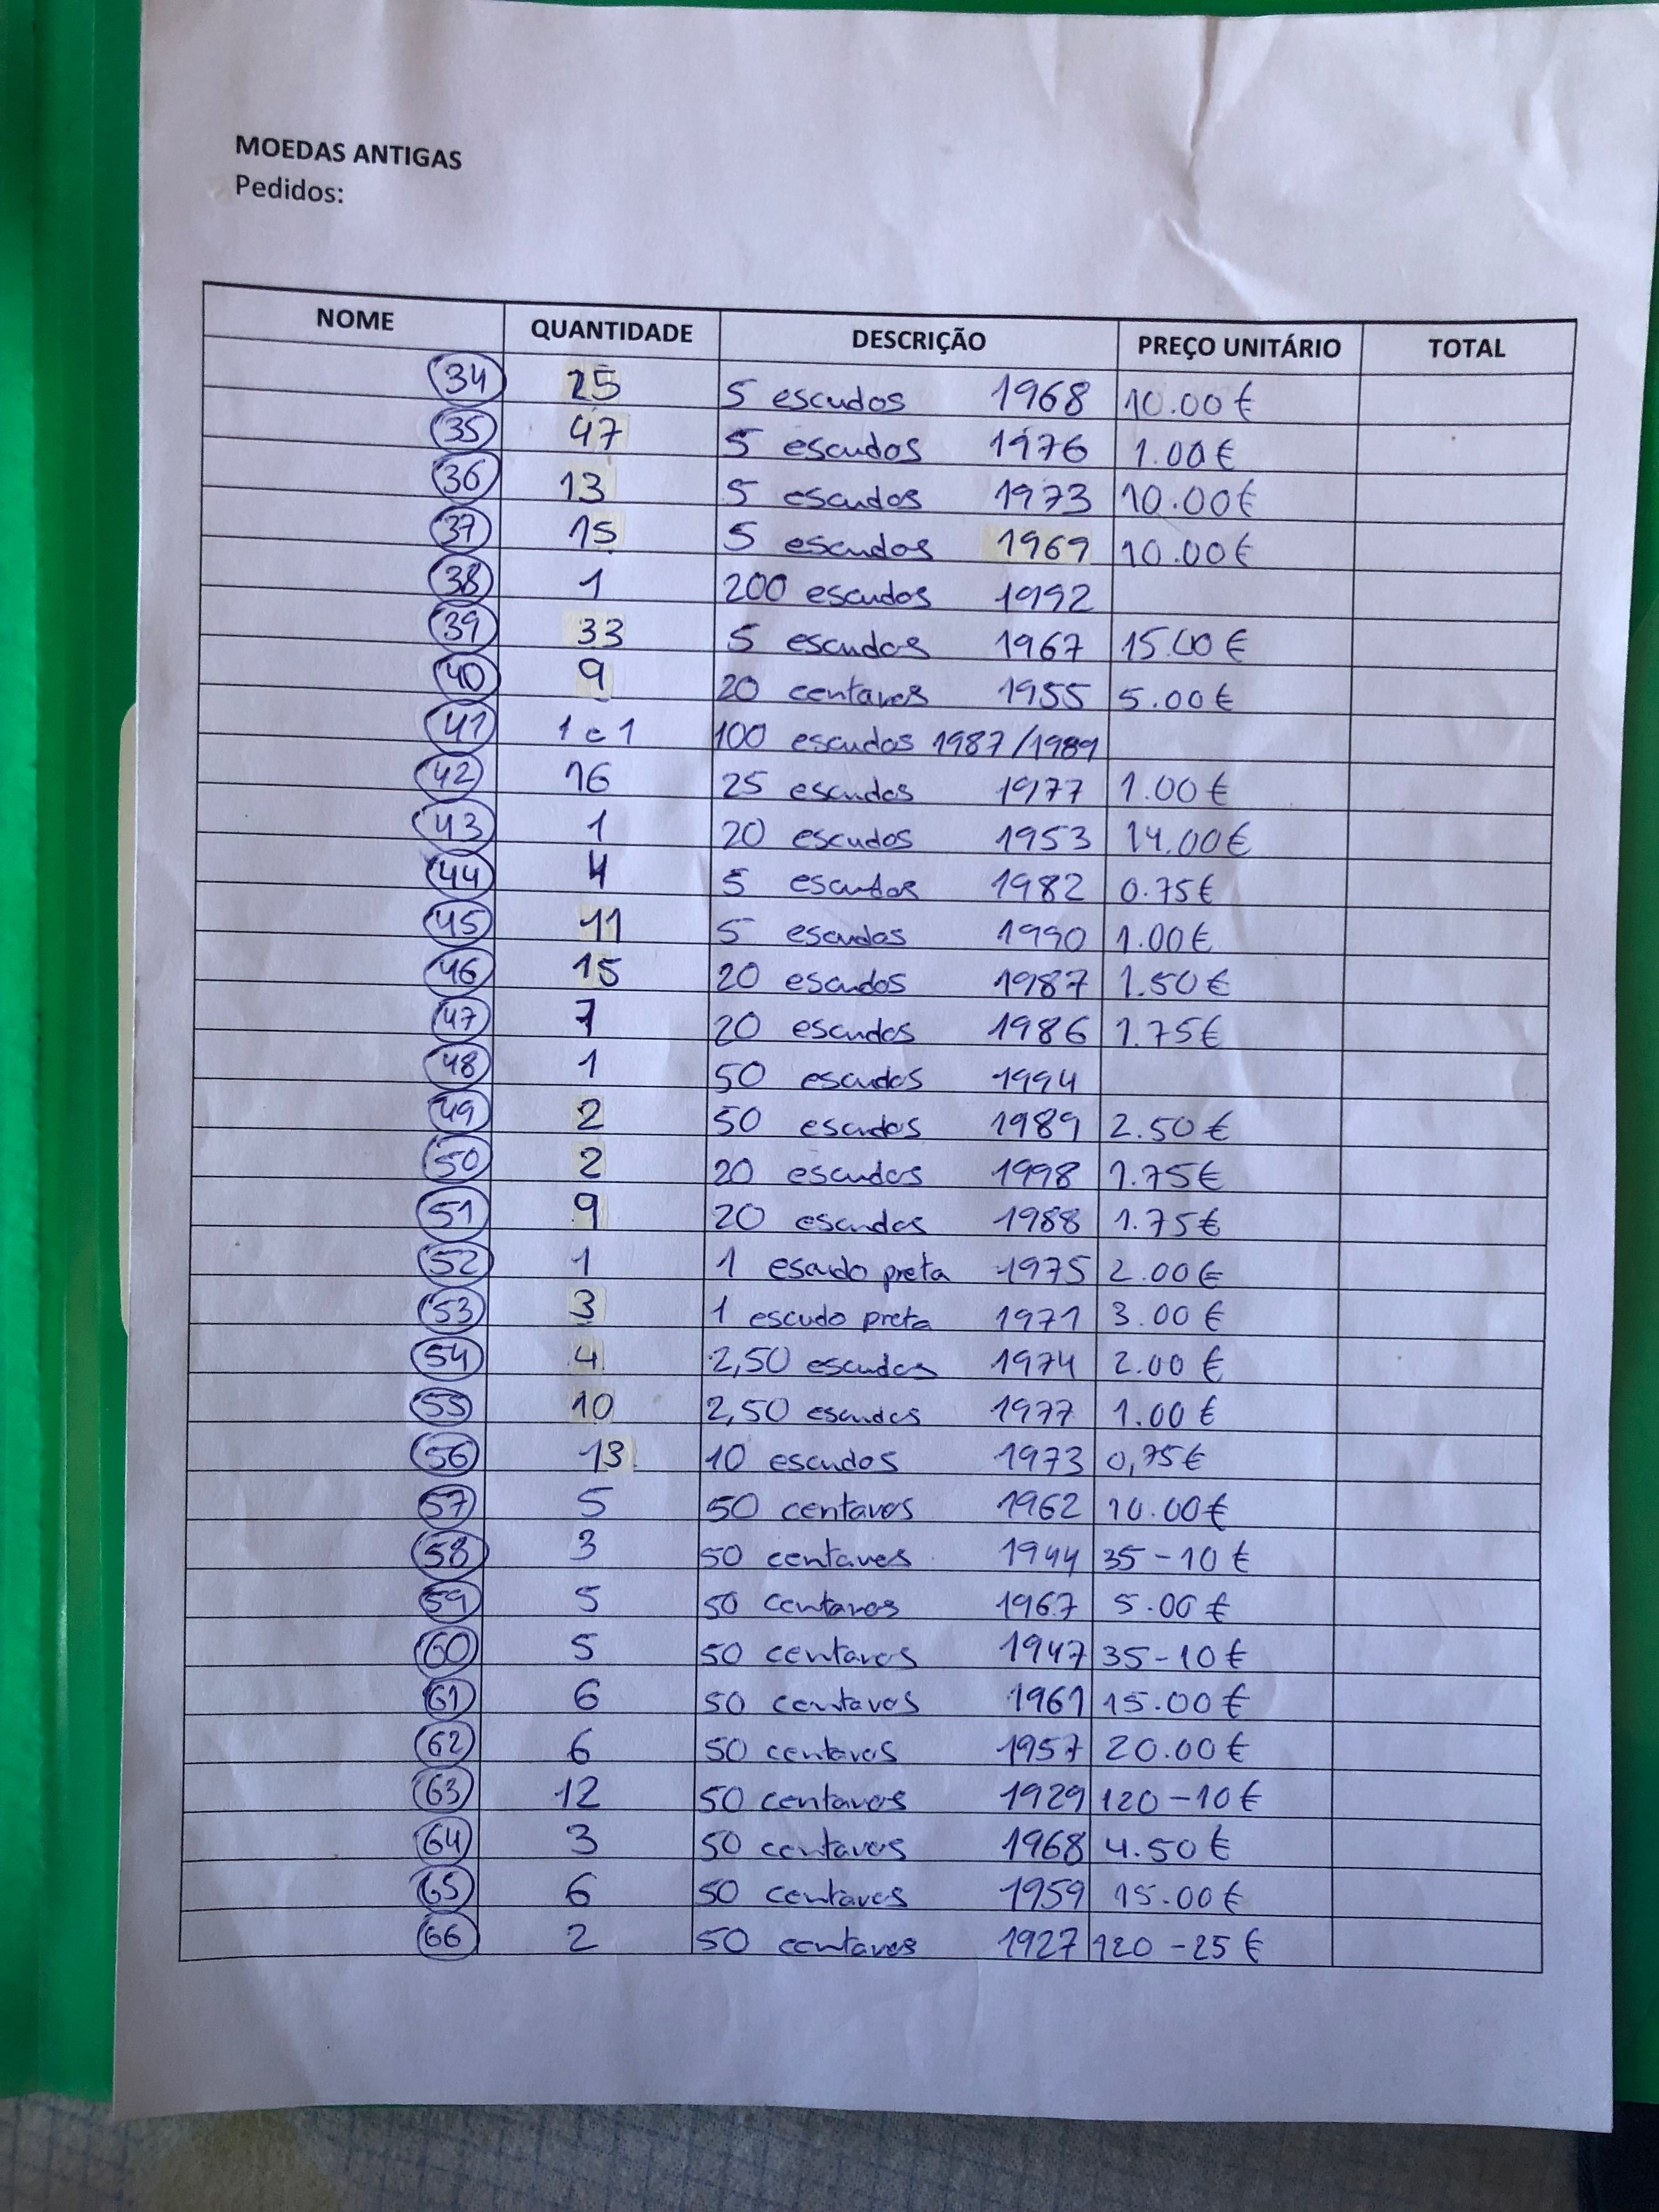 MOEDAS ANTIGAS
Pedidos:
NOME QUANTIDADE DESCRIÇÃO PREÇO UNITÁRIO TOTAL
34 25 5 escudos 1968 10.00€
35 47 5 escudos 1976 1.00€
36 13 5 escudos 1973 10.00€
37 15 5 escudos 1969 10.00€
38 1 200 escudos 1992
39 33 5 escudos 1967 15.00€
40 9 20 centavos 1955 5.00€
41 1 e 1 100 escudos 1987/1989
42 16 25 escudos 1977 1.00€
43 1 20 escudos 1953 14.00€
44 4 5 escudos 1982 0.75€
45 11 5 escudos 1990 1.00€
46 15 20 escudos 1987 1.50€
47 7 20 escudos 1986 1.75€
48 1 50 escudos 1994
49 2 50 escudos 1989 2.50€
50 2 20 escudos 1998 1.75€
51 9 20 escudos 1988 1.75€
52 1 1 escudo preta 1975 2.00€
53 3 1 escudo preta 1971 3.00€
54 4 2,50 escudos 1974 2.00€
55 10 2,50 escudos 1977 1.00€
56 13 10 escudos 1973 0,75€
57 5 50 centavos 1962 10.00€
58 3 50 centavos 1944 35-10€
59 5 50 centavos 1967 5.00€
60 5 50 centavos 1947 35-10€
61 6 50 centavos 1961 15.00€
62 6 50 centavos 1957 20.00€
63 12 50 centavos 1929 120-10€
64 3 50 centavos 1968 4.50€
65 6 50 centavos 1959 15.00€
66 2 50 centavos 1927 120-25€